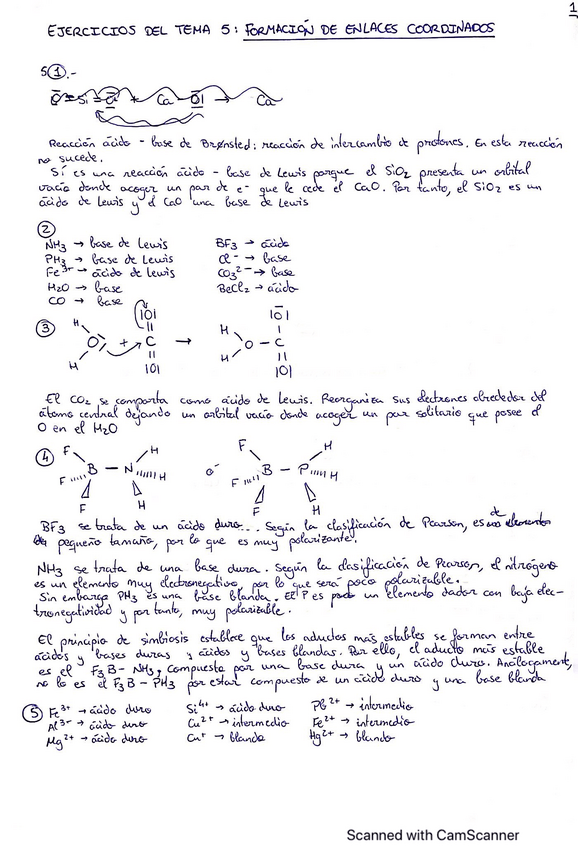 1
EJERCICIOS DEL TEMA 5: FORMACIÓN DE ENLACES COORDINADOS
5①.-
Si + Ca - O| → Ca
Reacción ácido - base de Brønsted: reacción de intercambio de protones. En esta reacción
no sucede.
Sí es una reacción ácido - base de Lewis porque el SiO2 presenta un orbital
vacío donde acoger un par de e- que le cede el CaO. Por tanto, el SiO2 es un
ácido de Lewis y el CaO una base de Lewis
②
NH3 → base de Lewis BF3 → ácido
PH3 → base de Lewis Cl- → base
Fe3+ → ácido de Lewis CO3 2- → base
H2O → base BeCl2 → ácido
CO → base
③ H |O| |O|
H O + C → H O - C
H |O| H |O|
El CO2 se comporta como ácido de Lewis. Reorganiza sus electrones alrededor del
átomo central dejando un orbital vacío donde acoger un par solitario que posee el
O en el H2O
④ F H F H
F B - N H o F B - P H
F H F H
BF3 se trata de un ácido duro... Según la clasificación de Pearson, es de
pequeño tamaño, por lo que es muy polarizante.
NH3 se trata de una base dura. Según la clasificación de Pearson, el nitrógeno
es un elemento muy electronegativo, por lo que será poco polarizable.
Sin embargo PH3 es una base blanda. El P es un elemento dador con baja elec-
tronegatividad y por tanto, muy polarizable.
El principio de simbiosis establece que los aductos más estables se forman entre
ácidos y bases duras y ácidos y bases blandas. Por ello, el aducto más estable
es el F3B - NH3, compuesto por una base dura y un ácido duro. Análogamente,
no lo es el F3B - PH3 por estar compuesto de un ácido duro y una base blanda
⑤ Fe3+ → ácido duro Si4+ → ácido duro Pb2+ → intermedio
Al3+ → ácido duro Cu2+ → intermedio Fe2+ → intermedio
Mg2+ → ácido duro Cu+ → blando Hg2+ → blando
Scanned with CamScanner